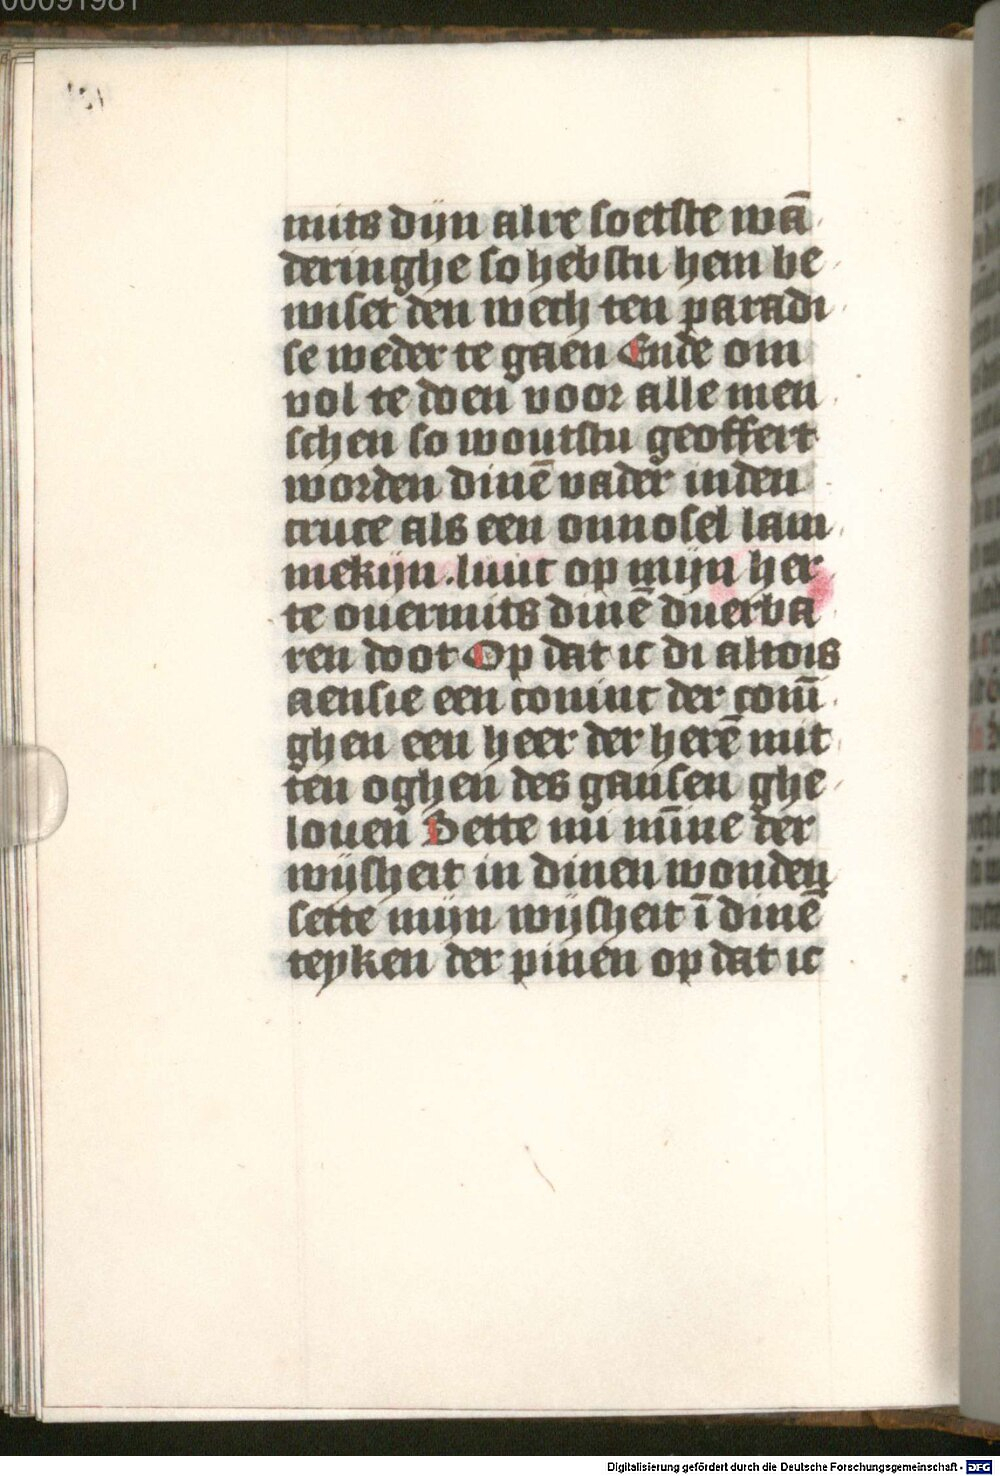 00091981
mits dijn alre soetste wā
deringhe so hebstu hem be
wiset den wech ten paradi
se weder te gaen Ende om
vol te doen voor alle men
schen so woutstu geoffert
worden dinē vader inden
cruce als een onnosel lam
mekijn. luut op mijn her
te ouermits dinē duerba
ren doot Op dat ic di altois
aensie een coninc der conī
ghen een heer der herē mit
ten oghen des gansen ghe
louen Sette mi mīne der
wijsheit in dinen wonden
sette mijn wijsheit ī dinē
teyken der pinen op dat ic
Digitalisierung gefördert durch die Deutsche Forschungsgemeinschaft - DFG